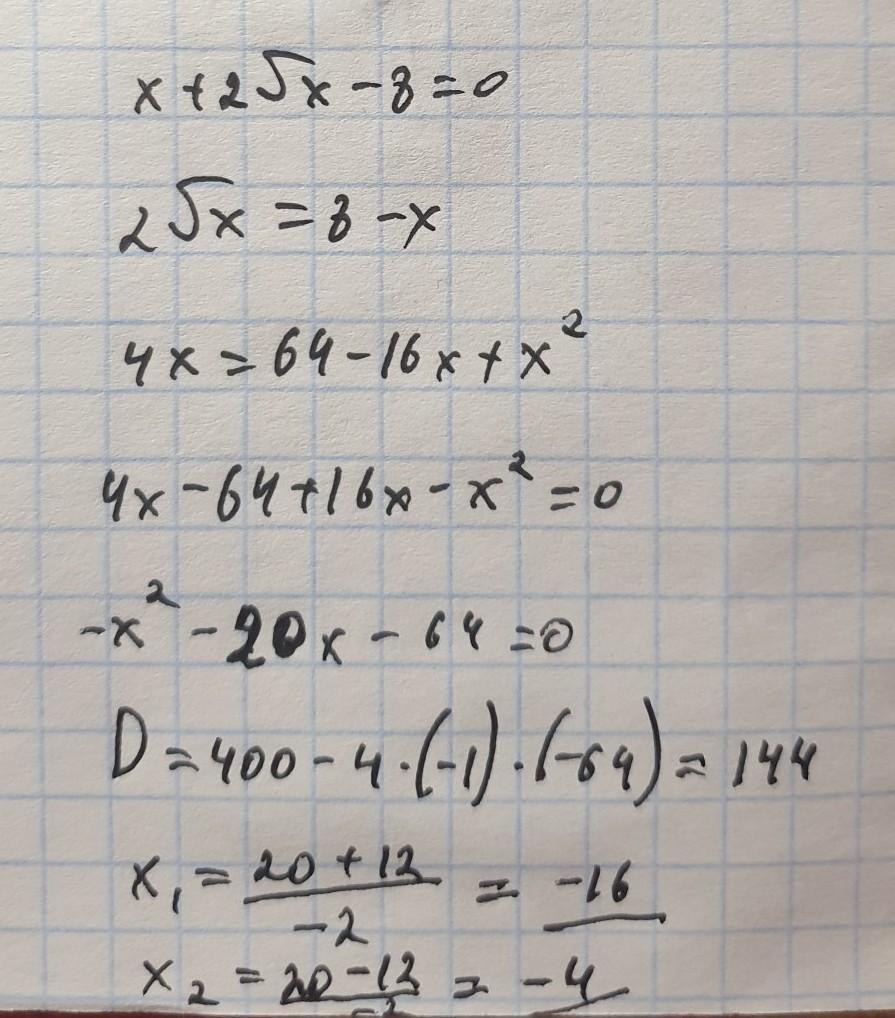 x + 2√x - 8 = 0
2√x = 8 - x
4x = 64 - 16x + x²
4x - 64 + 16x - x² = 0
-x² - 20x - 64 = 0
D = 400 - 4 · (-1) · (-64) = 144
x₁ = (20 + 12)/(-2) = -16
x₂ = (20 - 12)/(-2) = -4